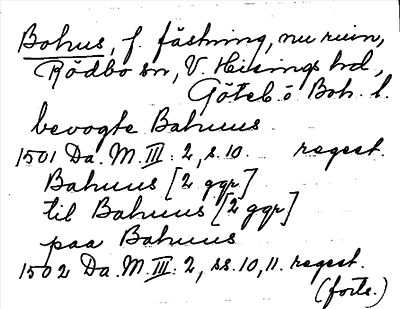 Bohus, f. fästning, nu ruin,
Rödbo sn, V. Hisings hd,
Göteb. o Boh. l.
bevogte Bahuus
1501 Da. M. III: 2, s. 10. regest.
Bahuus [2 ggr]
til Bahuus [2 ggr]
paa Bahuus
1502 Da. M. III: 2, ss. 10, 11. regest.
(forts.)